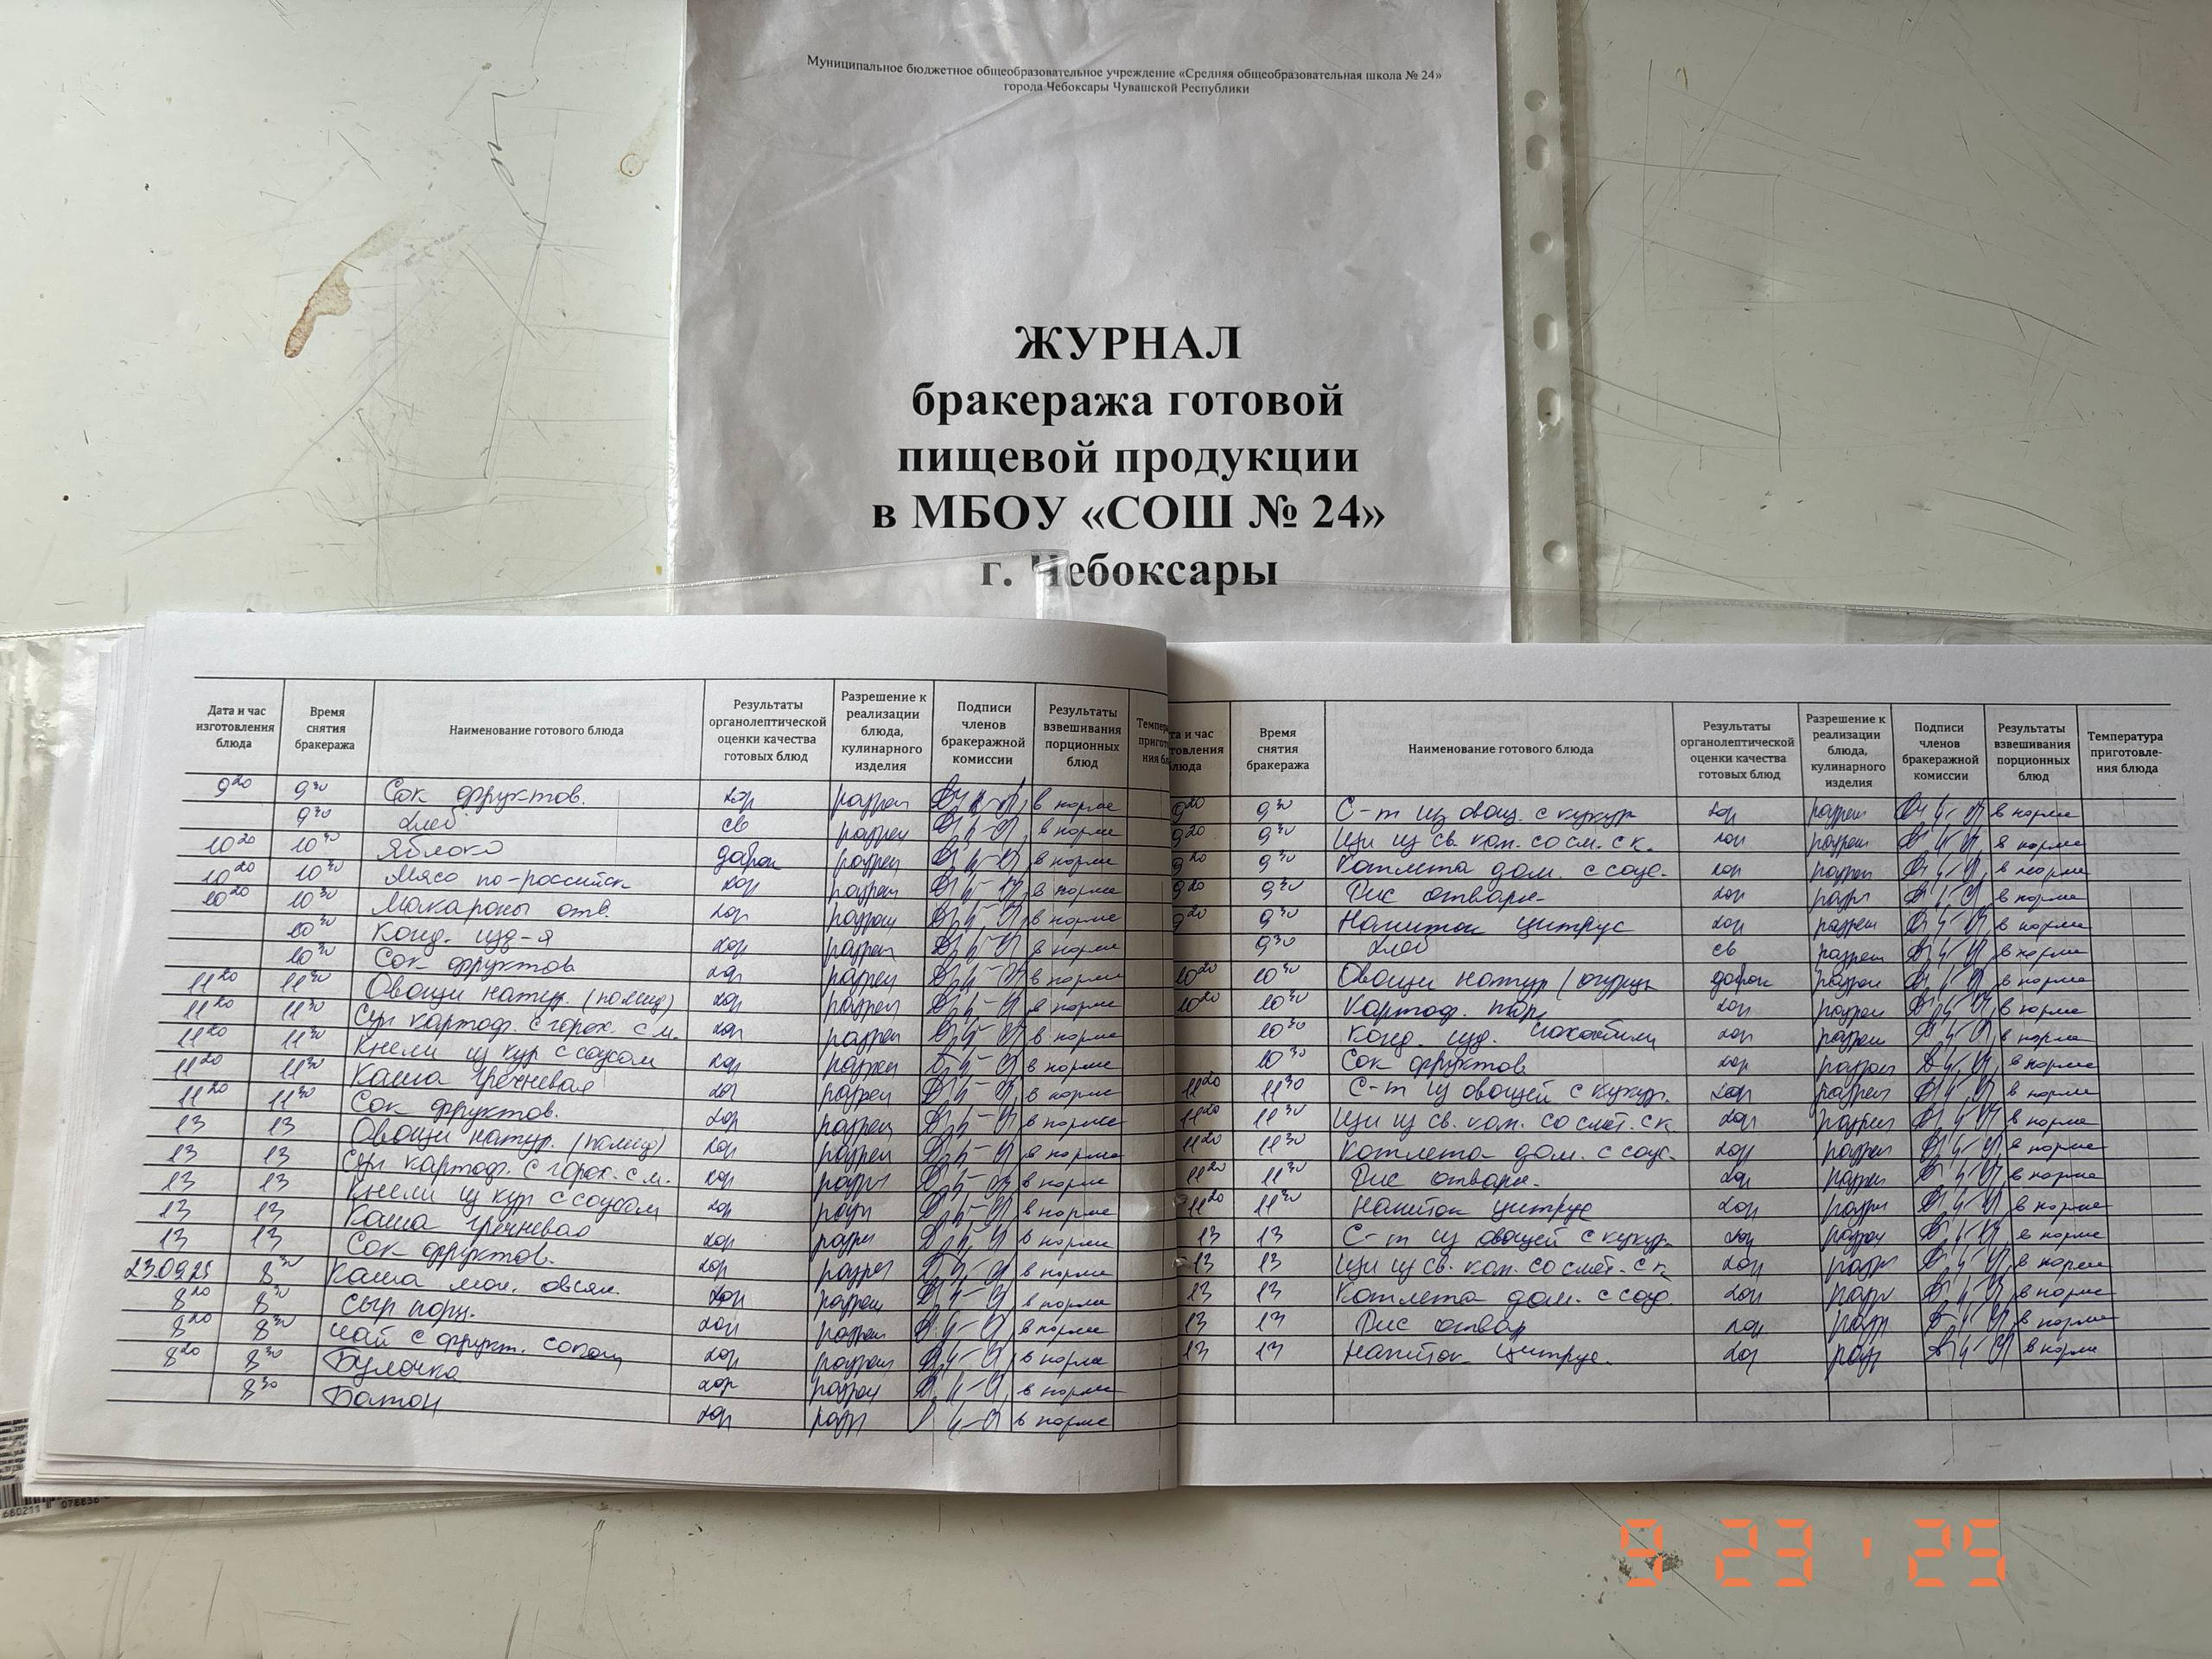 Муниципальное бюджетное общеобразовательное учреждение «Средняя общеобразовательная школа № 24»
города Чебоксары Чувашской Республики
ЖУРНАЛ
бракеража готовой
пищевой продукции
в МБОУ «СОШ № 24»
г. Чебоксары
Дата и час изготовления блюда
Время снятия бракеража
Наименование готового блюда
Результаты органолептической оценки качества готовых блюд
Разрешение к реализации блюда, кулинарного изделия
Подписи членов бракеражной комиссии
Результаты взвешивания порционных блюд
9 20 9 30 Сок фруктов. хор разреш в норме
9 30 Хлеб св разреш в норме
10 20 10 30 Яблоко доброк разреш в норме
10 20 10 30 Мясо по-российск хор разреш в норме
10 20 10 30 Макароны отв. хор разреш в норме
10 30 Конд. изд-я хор разреш в норме
10 30 Сок фруктов хор разреш в норме
11 20 11 30 Овощи натур. (помид) хор разреш в норме
11 20 11 30 Суп картоф. с горох. с м. хор разреш в норме
11 20 11 30 Кнели из кур с соусом хор разреш в норме
11 20 11 30 Каша гречневая хор разреш в норме
11 20 11 30 Сок фруктов. хор разреш в норме
13 13 Овощи натур. (помид) хор разреш в норме
13 13 Суп картоф. с горох. с м. хор в норме
13 13 Кнели из кур с соусом хор в норме
13 13 Каша гречневая хор в норме
13 13 Сок фруктов. хор в норме
23.09.25 8 30 Каша мол. овсян. хор разреш в норме
8 20 8 30 Сыр порц. хор разреш в норме
8 20 8 30 Чай с фрукт. соком хор разреш в норме
8 20 8 30 Булочка хор разреш в норме
8 30 Батон хор в норме
Время снятия бракеража
Наименование готового блюда
Результаты органолептической оценки качества готовых блюд
Разрешение к реализации блюда, кулинарного изделия
Подписи членов бракеражной комиссии
Результаты взвешивания порционных блюд
Температура приготовле-ния блюда
9 20 9 30 С-т из овощ. с кукур хор разреш в норме
9 20 9 30 Щи из св. кап. со см. с к. хор разреш в норме
9 20 9 30 Котлета дом. с соус. хор разреш в норме
9 20 9 30 Рис отварн. хор в норме
9 20 9 30 Напиток цитрус хор разреш в норме
9 30 Хлеб св разреш в норме
10 20 10 30 Овощи натур (огурцы доброк разреш в норме
10 20 10 30 Картоф. пюре хор разреш в норме
10 30 Конд. изд. хор разреш в норме
10 30 Сок фруктов хор разреш в норме
11 20 11 30 С-т из овощей с кукур. хор разреш в норме
11 20 11 30 Щи из св. кап. со смет. с к хор разреш в норме
11 20 11 30 Котлета дом. с соус. хор разреш в норме
11 20 11 30 Рис отварн. хор разреш в норме
11 20 11 30 Напиток цитрус хор в норме
13 13 С-т из овощей с кукур. хор в норме
13 13 Щи из св. кап. со смет. с к хор в норме
13 13 Котлета дом. с соус. хор в норме
13 13 Рис отвар хор в норме
13 13 Напиток цитрус. хор в норме
9 23 ' 25